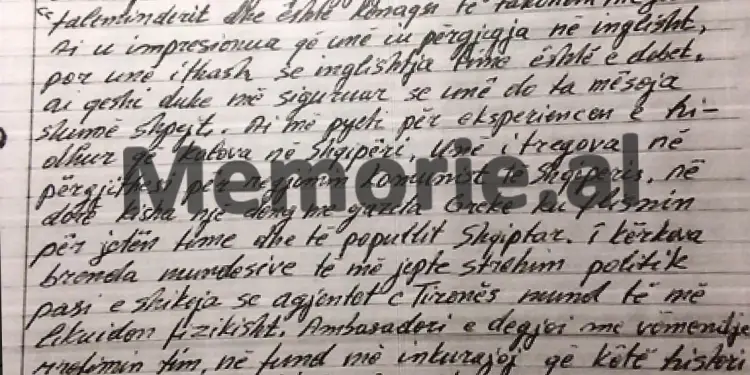 "faleminderit dhe është kënaqsi të takohem me
Ai u impresionua që unë iu përgjigja në inglisht,
por unë i thash se inglishtja time është e dobet.
ai qeshi duke më siguruar se unë do ta mësoja
shumë shpejt. Ai më pyeti për eksperiencen e hi-
dhur që kalova në Shqipëri. Unë i tregova në
përgjithesi për regjimin komunist të Shqiperis. në
dorë kisha një dëng me gazeta Greke ku flisnin
për jetën time dhe të popullit Shqiptar. i kërkova
brenda mundesive të më jepte strehim politik
pasi e shikoja se agjentet e Tiranës mund të më
likuidon fizikisht. Ambasadori e degjoi me vëmendje
rrefimin tim, në fund më inkurajoj që këtë histori
Memorie.al